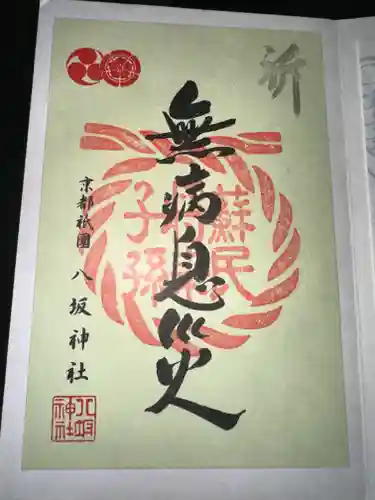 祈
無病息災
蘇民
子孫
京都祇園 八坂神社
八坂神社